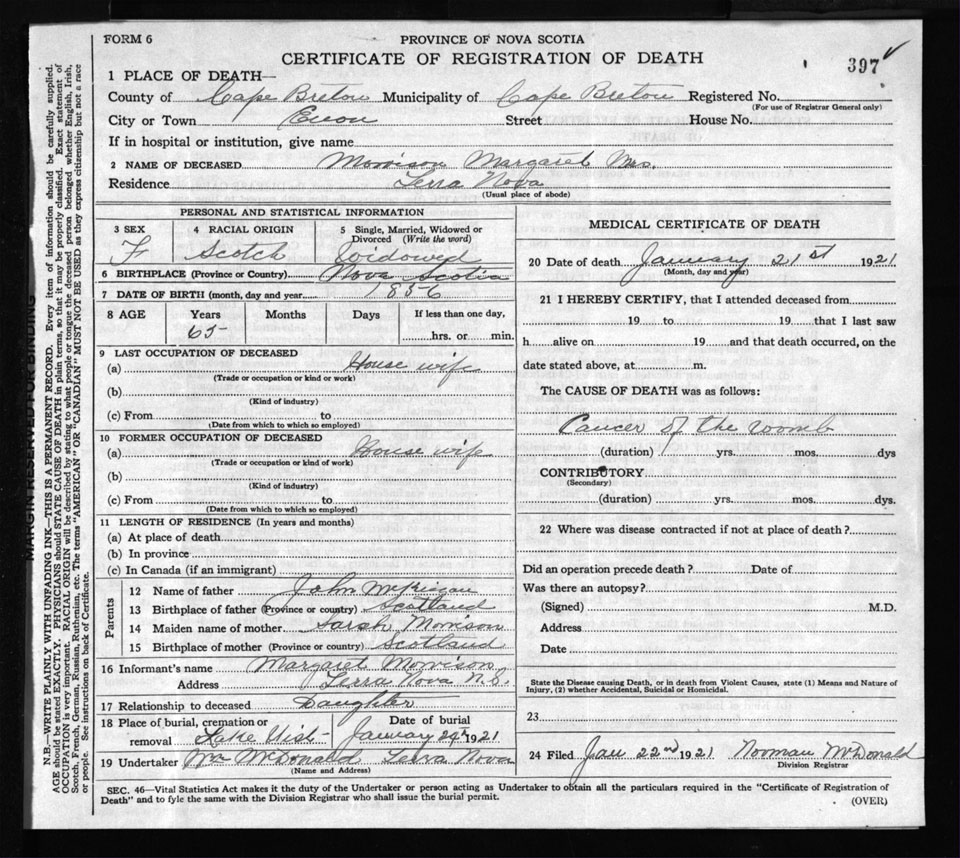 FORM 6
PROVINCE OF NOVA SCOTIA
CERTIFICATE OF REGISTRATION OF DEATH
397
1 PLACE OF DEATH—
County of Cape Breton Municipality of Cape Breton Registered No.
(For use of Registrar General only)
City or Town Enon Street House No.
If in hospital or institution, give name
2 NAME OF DECEASED Morrison Margaret Mrs.
Residence Terra Nova
(Usual place of abode)
PERSONAL AND STATISTICAL INFORMATION
3 SEX F
4 RACIAL ORIGIN Scotch
5 Single, Married, Widowed or Divorced (Write the word) Widowed
6 BIRTHPLACE (Province or Country) Nova Scotia
7 DATE OF BIRTH (month, day and year) 1856
8 AGE Years Months Days If less than one day,
65 hrs. or min.
9 LAST OCCUPATION OF DECEASED
(a) House wife
(Trade or occupation or kind or work)
(b)
(Kind of industry)
(c) From to
(Date from which to which so employed)
10 FORMER OCCUPATION OF DECEASED
(a) House wife
(Trade or occupation or kind of work)
(b)
(Kind of industry)
(c) From to
(Date from which to which so employed)
11 LENGTH OF RESIDENCE (In years and months)
(a) At place of death
(b) In province
(c) In Canada (if an immigrant)
Parents
12 Name of father John
13 Birthplace of father (Province or country) Scotland
14 Maiden name of mother Sarah Morrison
15 Birthplace of mother (Province or country) Scotland
16 Informant's name Margaret Morrison
Address Terra Nova N.S.
17 Relationship to deceased Daughter
18 Place of burial, cremation or removal Lake
Date of burial January 24 1921
19 Undertaker Wm McDonald Terra Nova
(Name and Address)
MEDICAL CERTIFICATE OF DEATH
20 Date of death January 21st 1921
(Month, day and year)
21 I HEREBY CERTIFY, that I attended deceased from
19 to 19 that I last saw
h alive on 19 and that death occurred, on the
date stated above, at m.
The CAUSE OF DEATH was as follows:
Cancer of the womb
(duration) yrs. mos. dys
CONTRIBUTORY
(Secondary)
(duration) yrs. mos. dys.
22 Where was disease contracted if not at place of death?
Did an operation precede death? Date of
Was there an autopsy?
(Signed) M.D.
Address
Date
State the Disease causing Death, or in death from Violent Causes, state (1) Means and Nature of
Injury, (2) whether Accidental, Suicidal or Homicidal.
23
24 Filed Jan 22nd 1921 Norman McDonald
Division Registrar
SEC. 46—Vital Statistics Act makes it the duty of the Undertaker or person acting as Undertaker to obtain all the particulars required in the "Certificate of Registration of
Death" and to fyle the same with the Division Registrar who shall issue the burial permit.
(OVER)
MARGIN RESERVED FOR BINDING
N.B.—WRITE PLAINLY WITH UNFADING INK—THIS IS A PERMANENT RECORD. Every item of information should be carefully supplied.
AGE should be stated EXACTLY. PHYSICIANS should STATE CAUSE OF DEATH in plain terms, so that it may be properly classified. Exact statement of
OCCUPATION is very important. RACIAL ORIGIN will be described by stating to what people or tongue the deceased person belonged whether English, Irish,
Scotch, French, German, Russian, Ruthenian, etc. The terms "AMERICAN" OR "CANADIAN" MUST NOT BE USED as they express citizenship but not a race
or people. See instructions on back of Certificate.